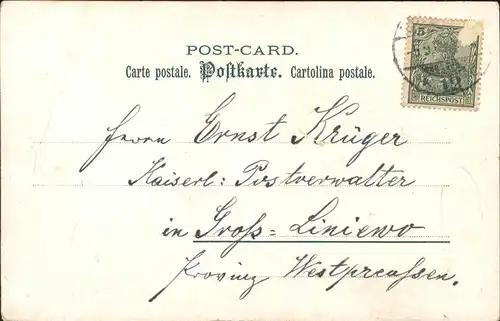 POST-CARD.
Carte postale. Postkarte. Cartolina postale.
5
REICHSPOST
Herrn Ernst Krüger
Kaiserl: Postverwalter
in Gross=Liniewo
Provinz Westpreussen.